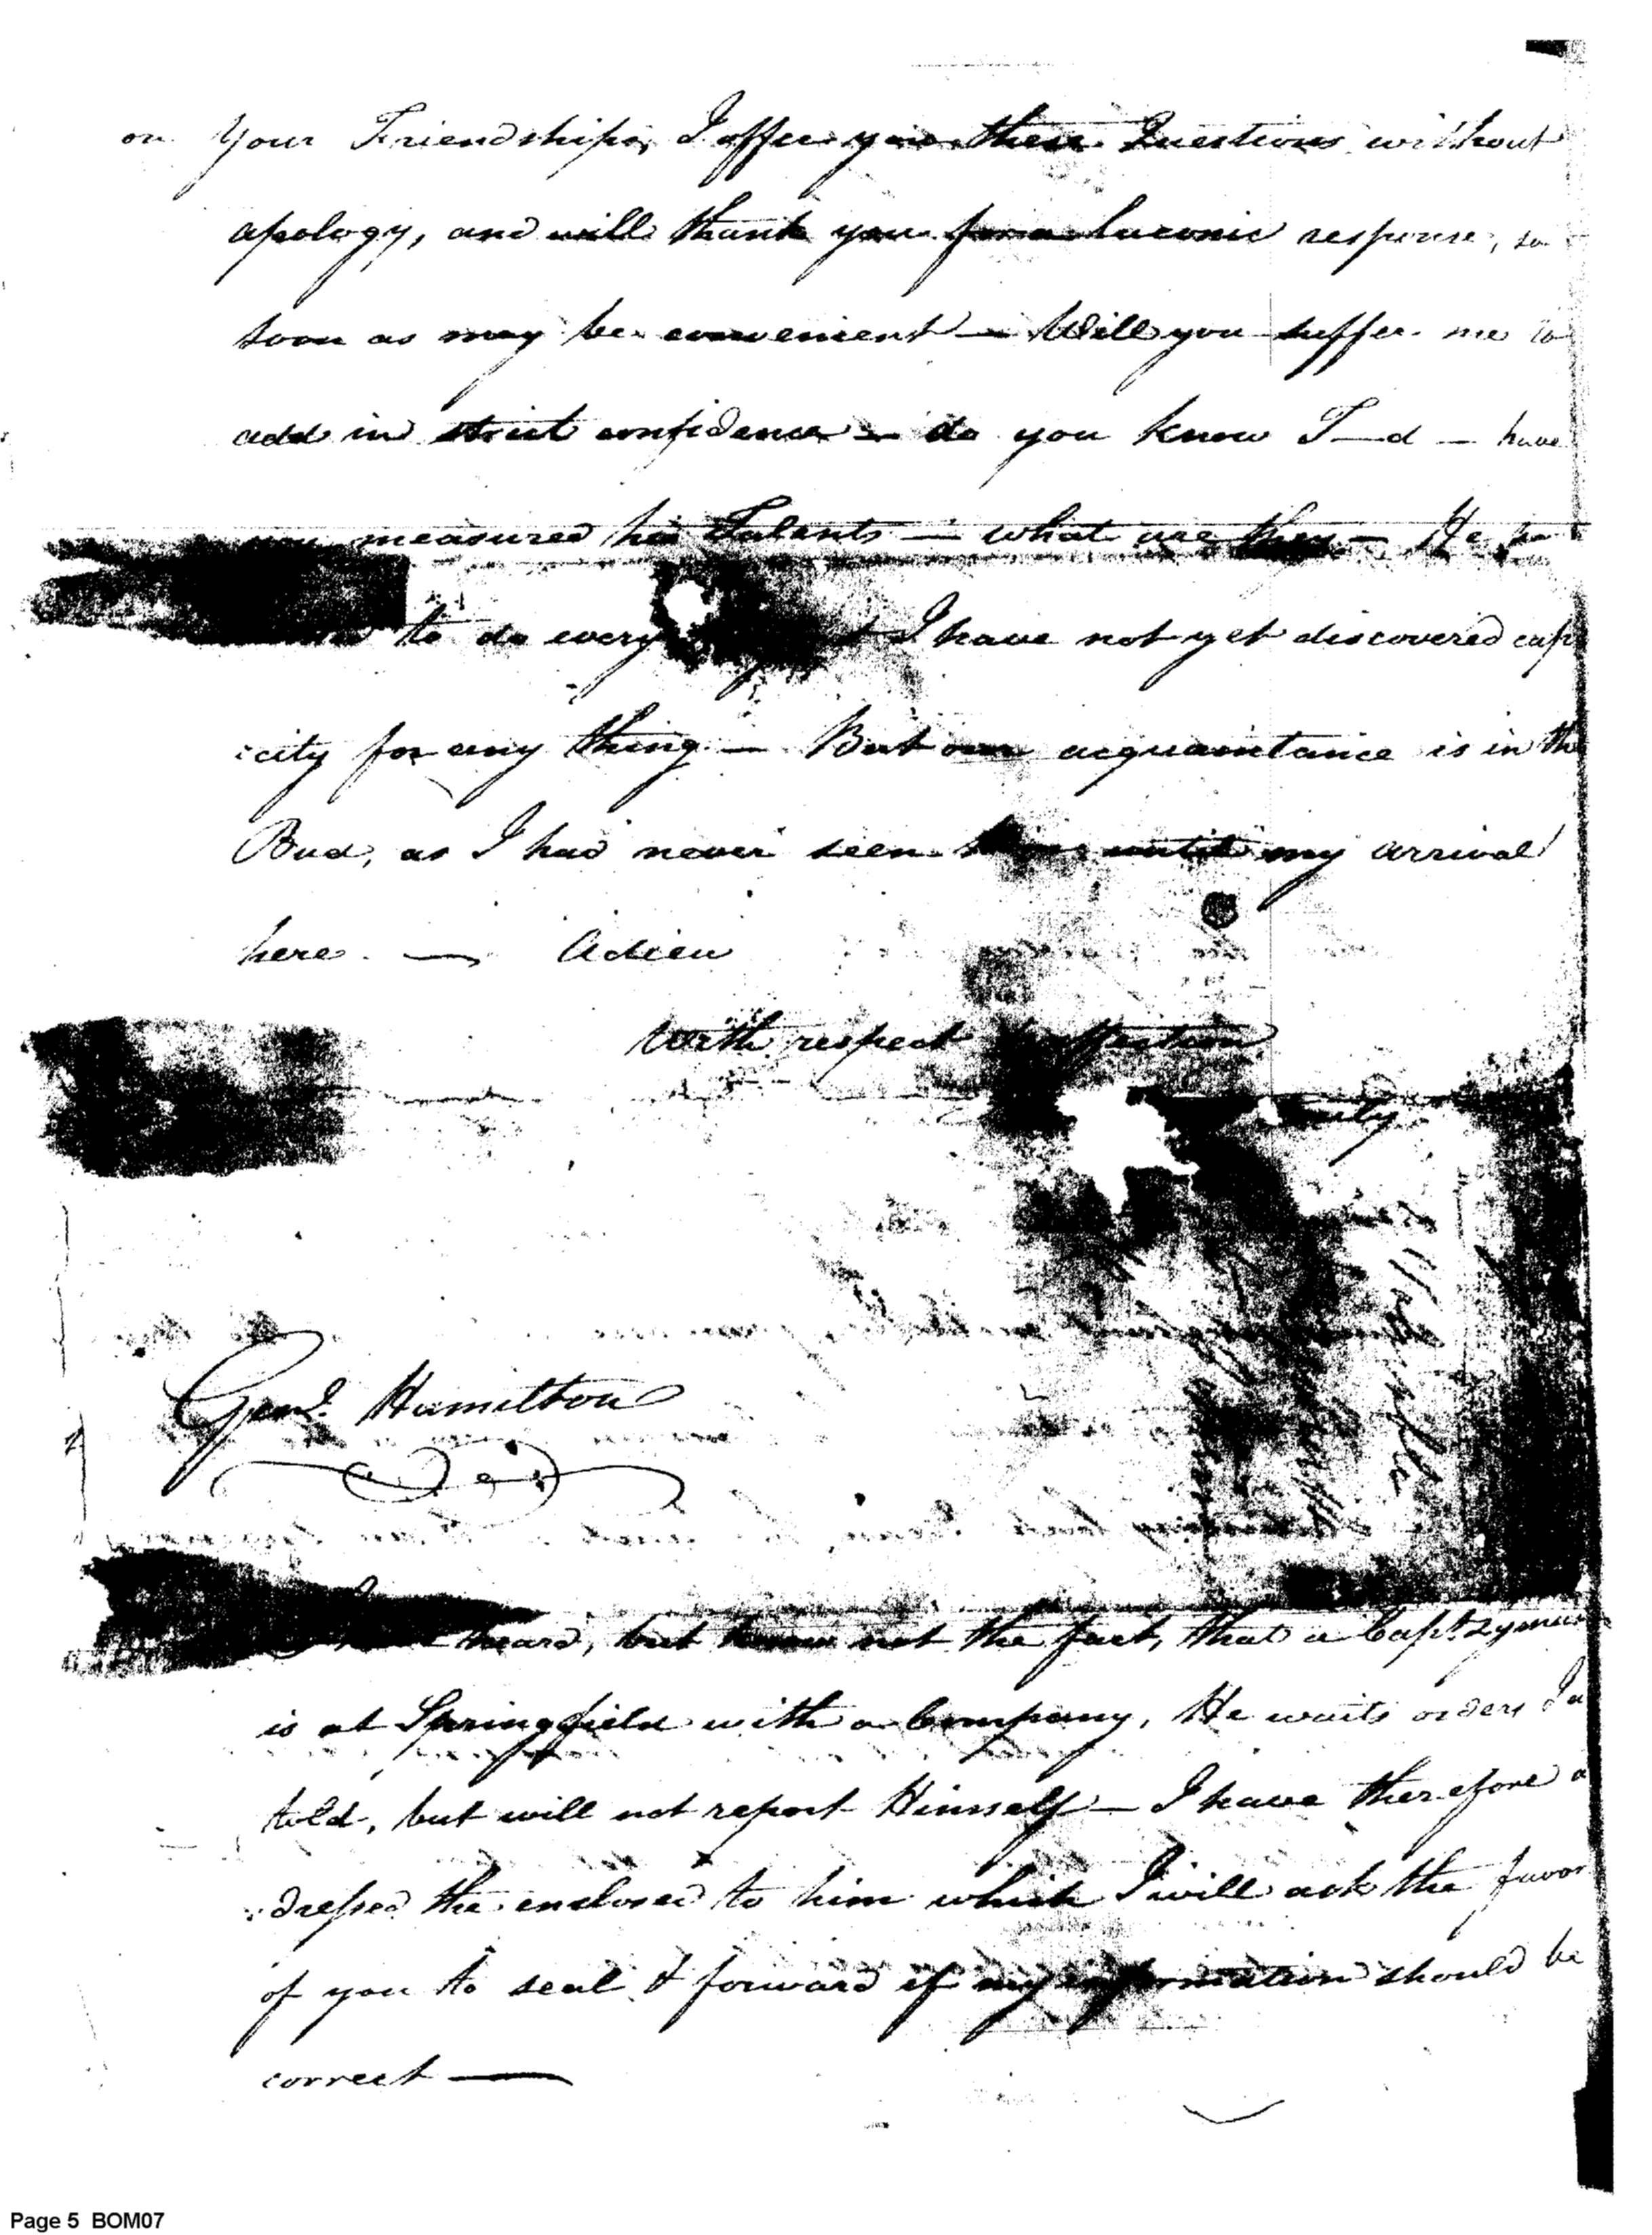 on Your Friendship, I offer you these Questions without
apology, and will thank you for a laconic response, so
soon as may be convenient — Will you suffer me to
add in strict confidence — do you know T—d — have
you measured his Talents — what are they — He
to do every I have not yet discovered capa
:city for any thing — But our acquaintance is in the
Bud, as I had never seen him until my arrival
here. — Adieu
With respect & affection
truly
Genl. Hamilton
I have heard, but know not the fact, that a Capt. Lyman
is at Springfield with a Company, He waits orders Im
told, but will not report Himself — I have therefore ad
:dressed the enclosed to him which I will ask the favor
of you to seal & forward if my information should be
correct —
Page 5 BOM07